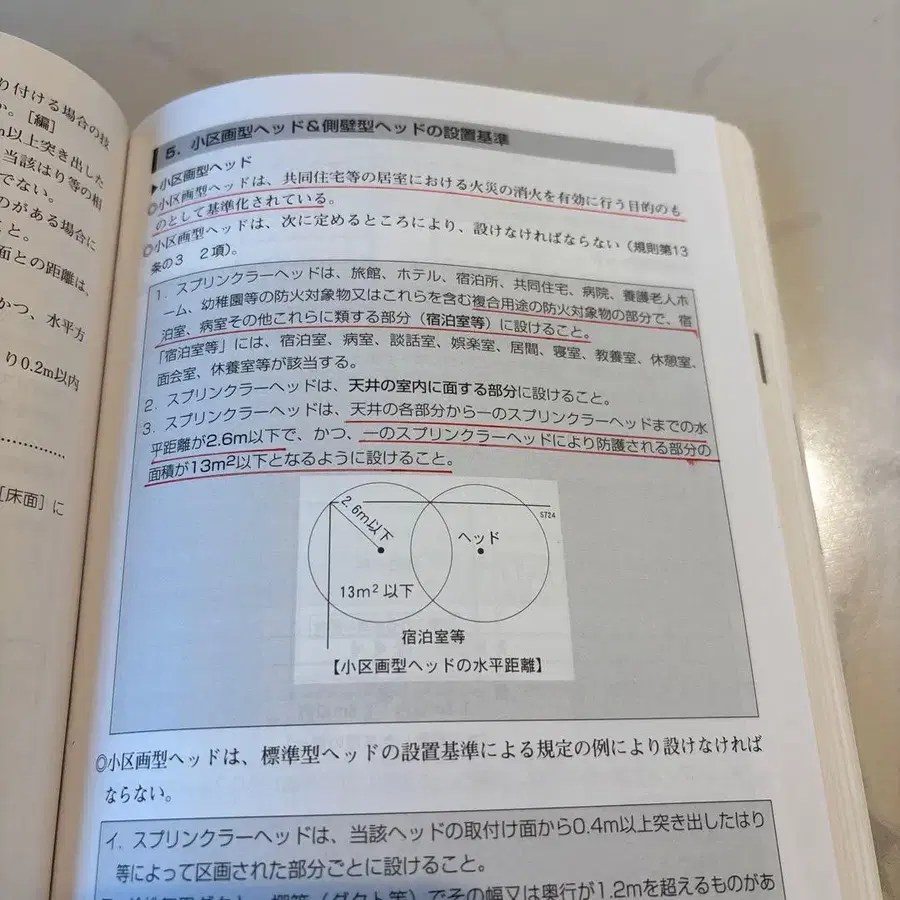 り付ける場合の技
か。[編]
m以上突き出した
当該はり等の相
でない。
のがある場合に
こと。
面との距離は、
かつ、水平方
り0.2m以内
[床面]に
5. 小区画型ヘッド&側壁型ヘッドの設置基準
▶小区画型ヘッド
◎小区画型ヘッドは、共同住宅等の居室における火災の消火を有効に行う目的のも
のとして基準化されている。
◎小区画型ヘッドは、次に定めるところにより、設けなければならない(規則第13
条の3 2項)。
1. スプリンクラーヘッドは、旅館、ホテル、宿泊所、共同住宅、病院、養護老人ホ
ーム、幼稚園等の防火対象物又はこれらを含む複合用途の防火対象物の部分で、宿
泊室、病室その他これらに類する部分(宿泊室等)に設けること。
「宿泊室等」には、宿泊室、病室、談話室、娯楽室、居間、寝室、教養室、休憩室、
面会室、休養室等が該当する。
2. スプリンクラーヘッドは、天井の室内に面する部分に設けること。
3. スプリンクラーヘッドは、天井の各部分から一のスプリンクラーヘッドまでの水
平距離が2.6m以下で、かつ、一のスプリンクラーヘッドにより防護される部分の
面積が13m²以下となるように設けること。
2.6m以下
S724
ヘッド
13m² 以下
宿泊室等
【小区画型ヘッドの水平距離】
◎小区画型ヘッドは、標準型ヘッドの設置基準による規定の例により設けなければ
ならない。
イ. スプリンクラーヘッドは、当該ヘッドの取付け面から0.4m以上突き出したはり
等によって区画された部分ごとに設けること。
棚等(ダクト等)でその幅又は奥行が1.2mを超えるものがあ